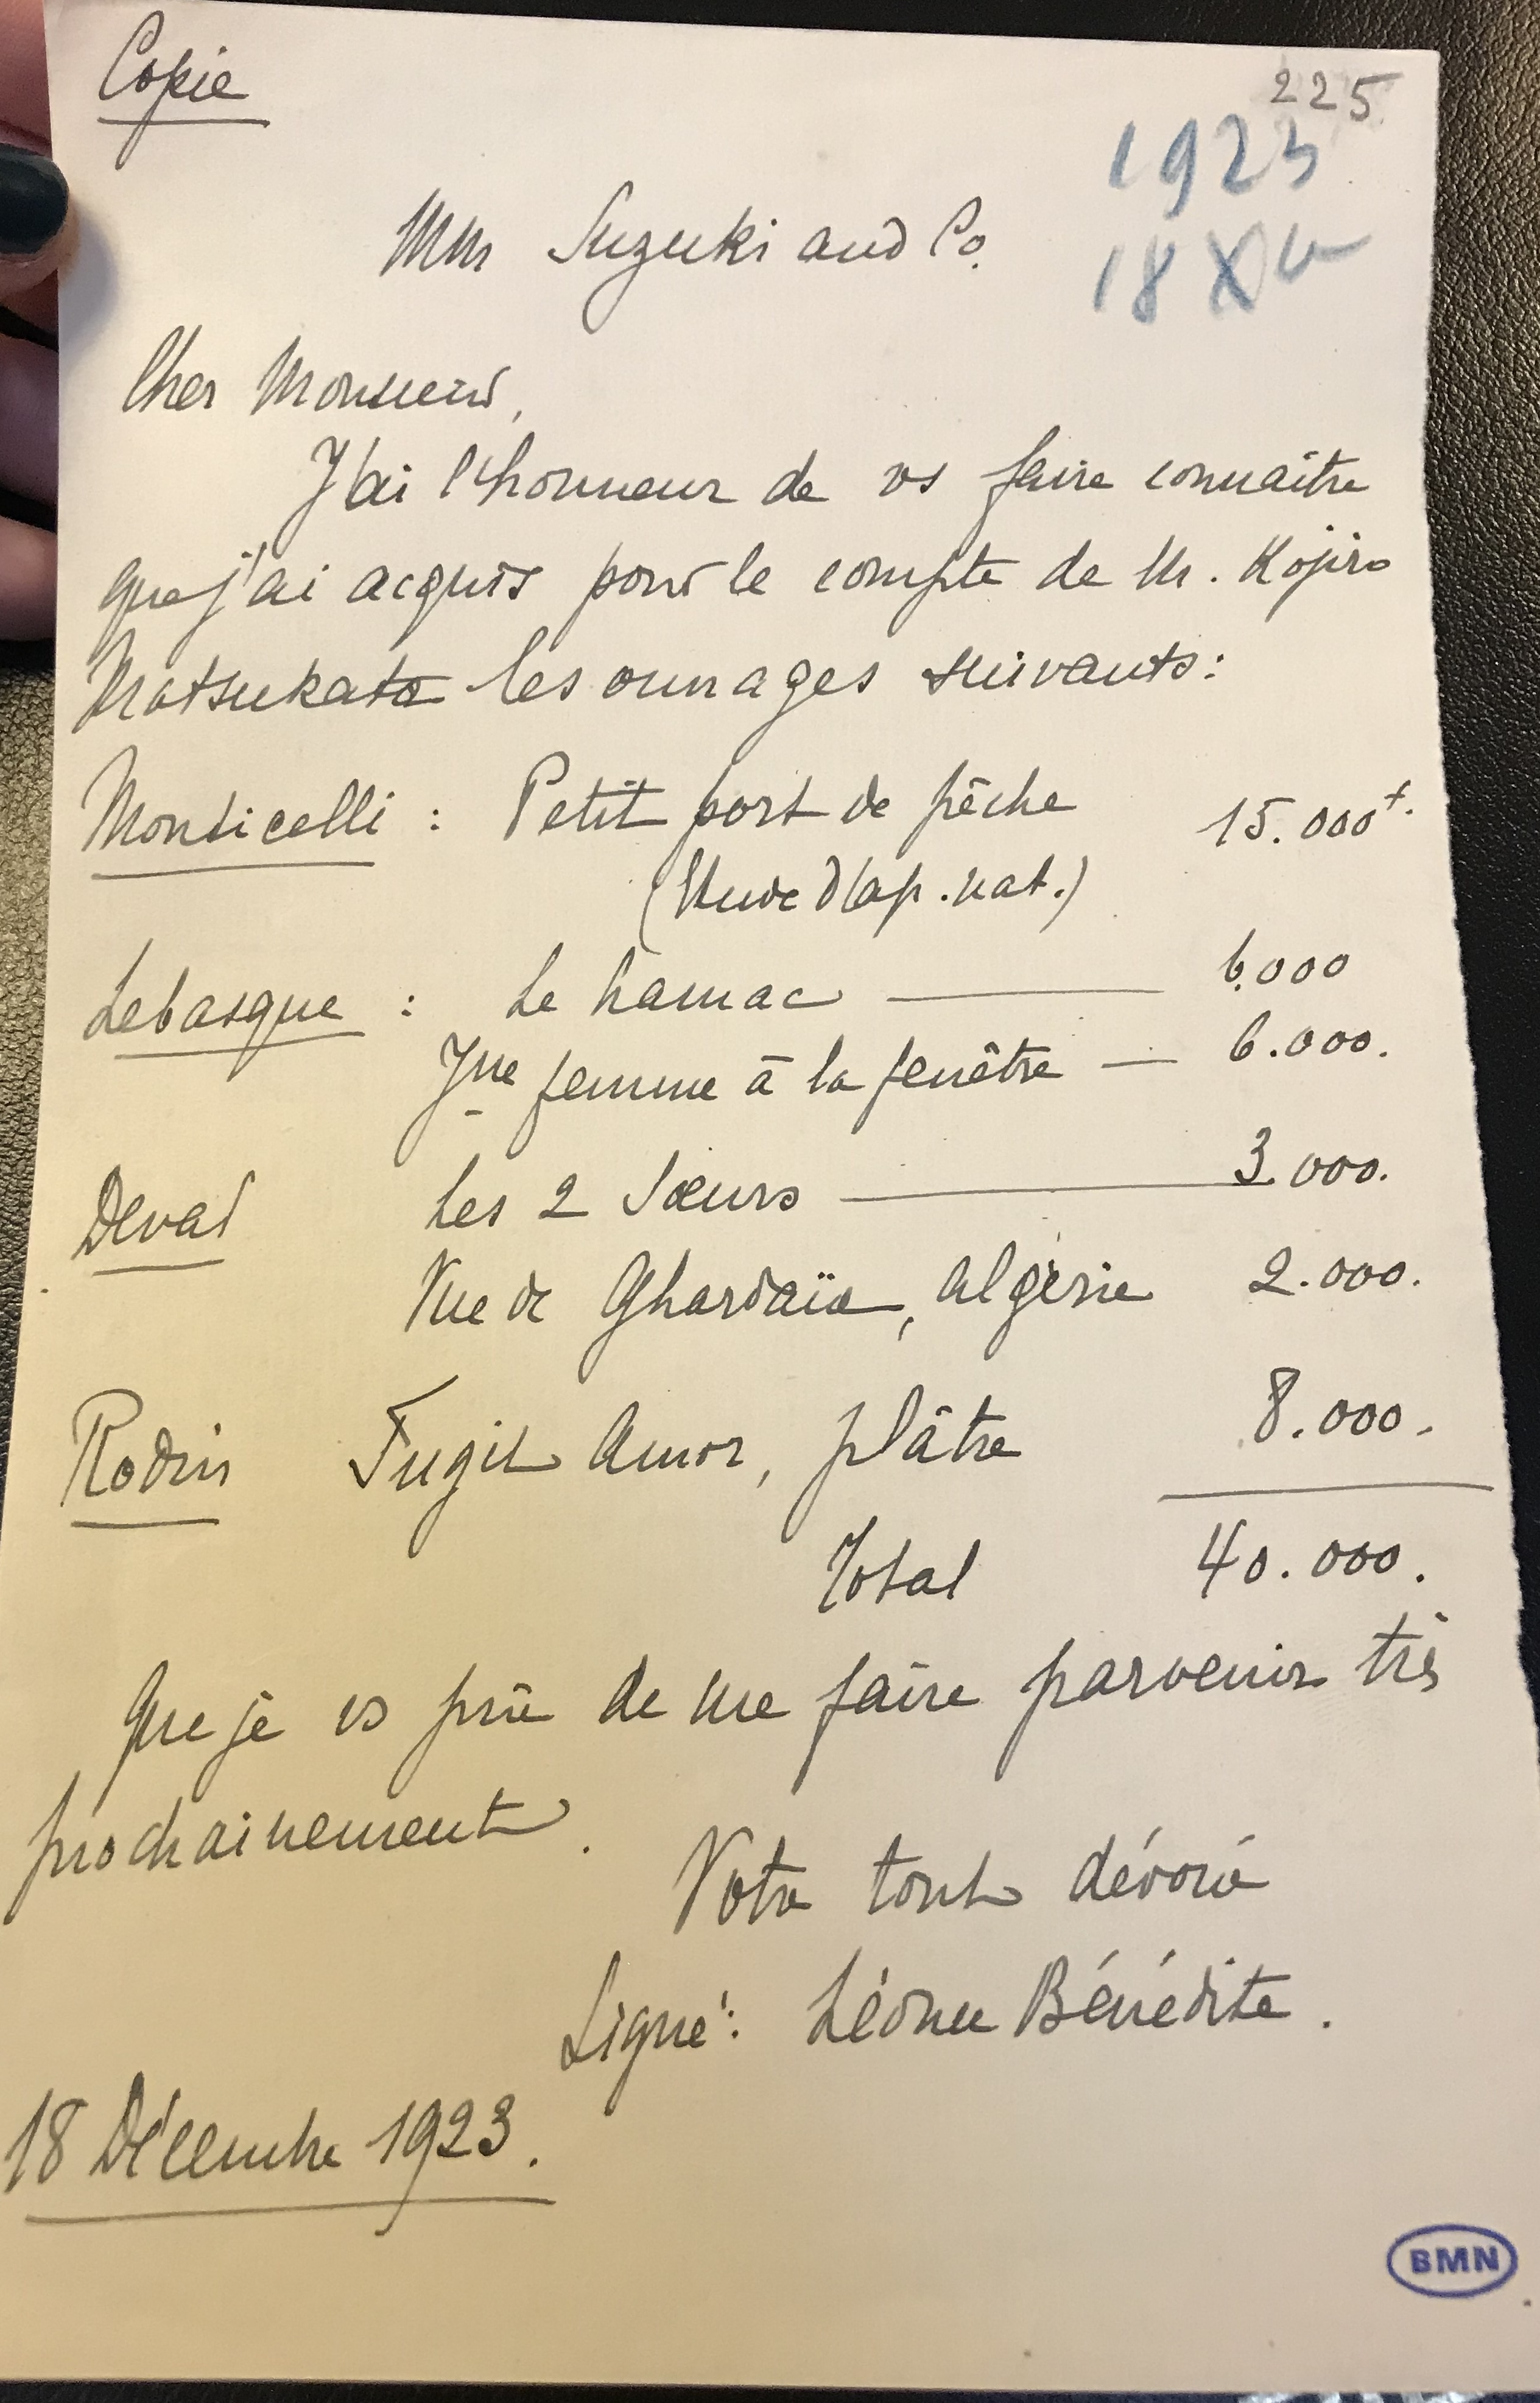 Copie
225
1923
18 XII
MM Suzuki and Co.
Cher Monsieur,
J'ai l'honneur de vs faire connaître
que j'ai acquis pour le compte de M. Kojiro
Matsukata les ouvrages suivants:
Monticelli : Petit port de pêche 15.000 f.
(Etude d'ap. nat.)
Lebasque : Le hamac — 6.000
Jne femme à la fenêtre — 6.000.
Deval Les 2 Sœurs — 3.000.
Vue de Ghardaïa, Algérie 2.000.
Rodin Fugit Amor, plâtre 8.000.
Total 40.000.
que je vs prie de me faire parvenir très
prochainement.
Votre tout dévoué
Signé: Léonce Bénédite.
18 Décembre 1923.
BMN